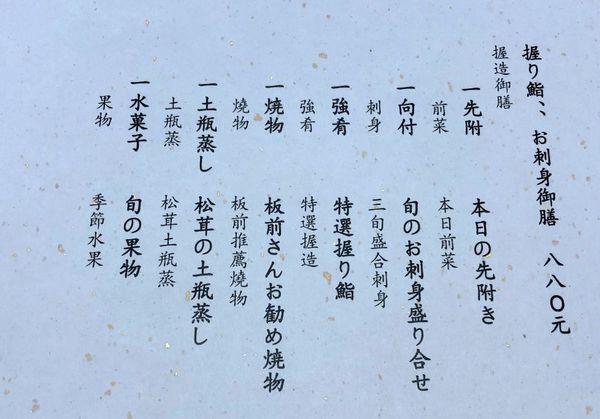 握り鮨、、お刺身御膳 八八〇元
握造御膳
一先附 本日の先附き
前菜 本日前菜
一向付 旬のお刺身盛り合せ
刺身 三旬盛合刺身
一強肴 特選握り鮨
強肴 特選握造
一焼物 板前さんお勧め焼物
燒物 板前推薦燒物
一土瓶蒸し 松茸の土瓶蒸し
土瓶蒸 松茸土瓶蒸
一水菓子 旬の果物
果物 季節水果